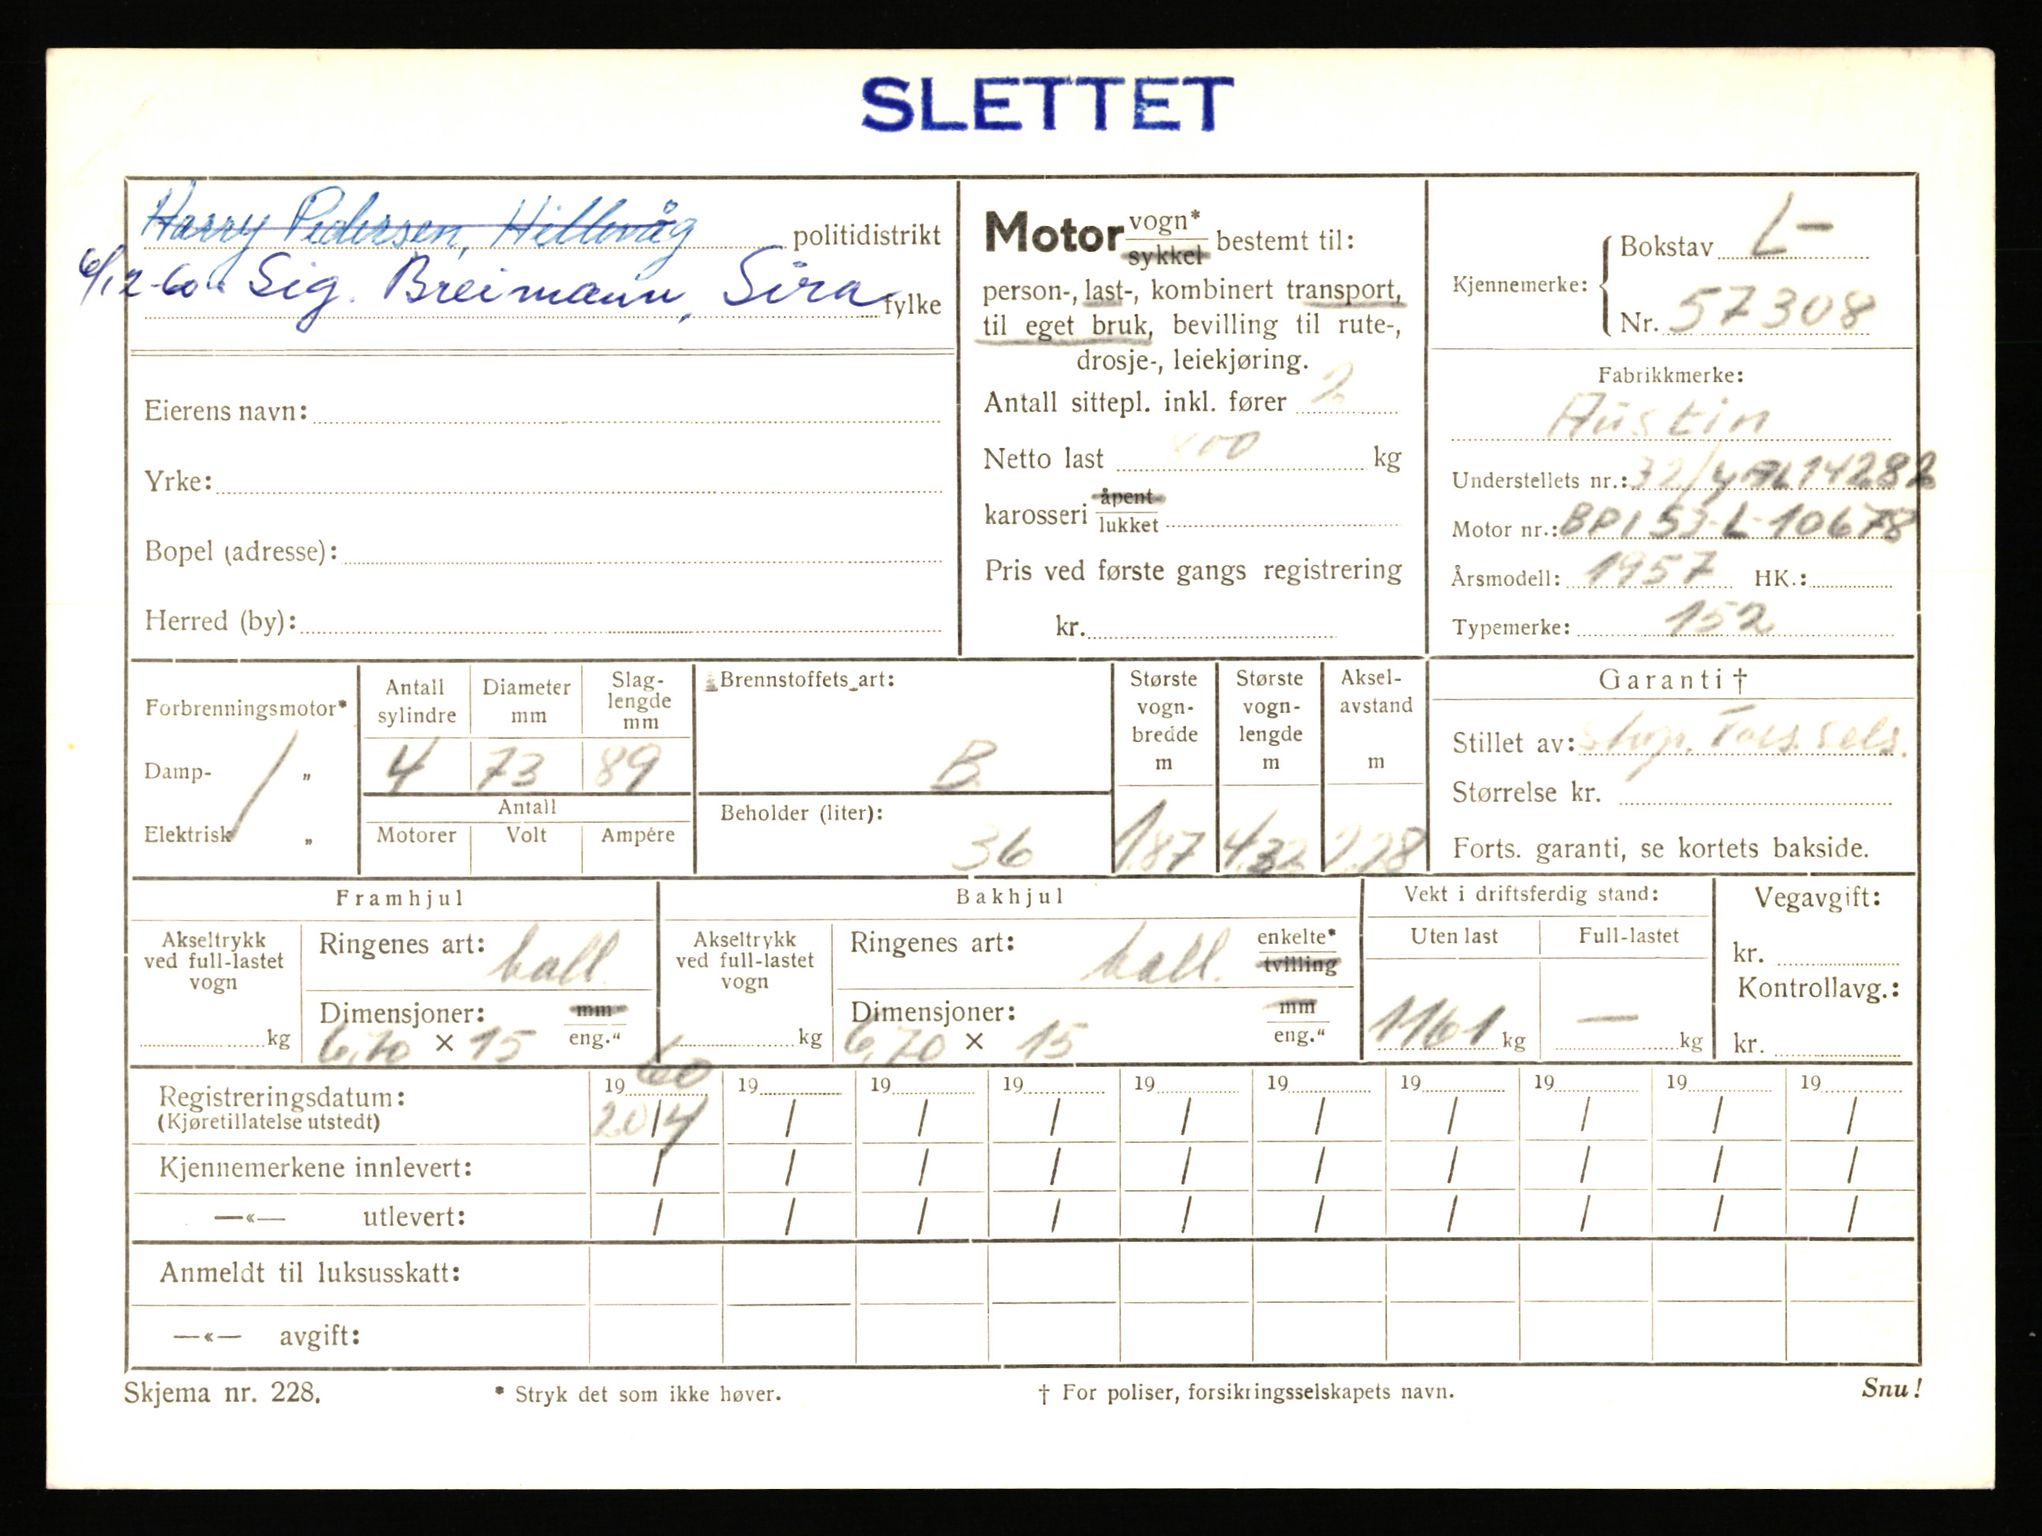 SLETTET
Harry Pedersen, Hillevåg politidistrikt
6/12-60 Sig. Breimann, Sira fylke
Eierens navn:
Yrke:
Bopel (adresse):
Herred (by):
Motor vogn* sykkel bestemt til:
person-, last-, kombinert transport,
til eget bruk, bevilling til rute-,
drosje-, leiekjøring.
Antall sittepl. inkl. fører 2
Netto last 800 kg
karosseri åpent lukket
Pris ved første gangs registrering
kr.
Kjennemerke: Bokstav L-
Nr. 57308
Fabrikkmerke:
Austin
Understellets nr.: 14282
Motor nr.: BP153-L-10678
Årsmodell: 1957 HK.:
Typemerke: 152
Forbrenningsmotor*
Damp- "
Elektrisk "
Antall sylindre
Diameter mm
Slag-lengde mm
4 73 89
Antall
Motorer Volt Ampére
Brennstoffets art:
B.
Beholder (liter):
36
Største vogn-bredde m
1.87
Største vogn-lengde m
4.32
Aksel-avstand m
2.28
Garanti †
Stillet av:
Størrelse kr.
Forts. garanti, se kortets bakside.
Framhjul
Akseltrykk ved full-lastet vogn
kg
Ringenes art: ball.
Dimensjoner: mm
6,70 × 15 eng."
Bakhjul
Akseltrykk ved full-lastet vogn
kg
Ringenes art: ball. enkelte* tvilling
Dimensjoner: mm
6,70 × 15 eng."
Vekt i driftsferdig stand:
Uten last Full-lastet
1161 kg — kg
Vegavgift:
kr.
Kontrollavg.:
kr.
Registreringsdatum: 1960 19 19 19 19 19 19 19 19 19
(Kjøretillatelse utstedt) 20/4 / / / / / / / / /
Kjennemerkene innlevert: / / / / / / / / / /
—«— utlevert: / / / / / / / / / /
Anmeldt til luksusskatt:
—«— avgift:
Skjema nr. 228. * Stryk det som ikke høver. † For poliser, forsikringsselskapets navn. Snu!